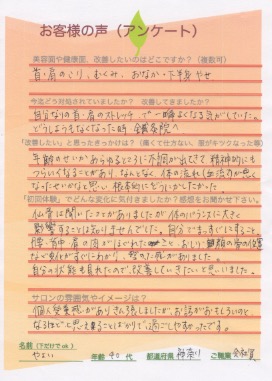 お客様の声（アンケート）
美容面や健康面、改善したいのはどこですか？（複数可）
首・肩のこり、むくみ、おなか・下半身やせ
今迄どう対処されていましたか？ 改善してきましたか？
自分なりの首・肩のストレッチ、で一瞬よくなる気がしていた。
どうしようもなくなった時 鍼灸院へ
「改善したい」と思ったきっかけは？（痛くて仕方ない、服がキツくなった等）
年齢のせいか あらゆるところに不調が出てきて 精神的にも
つらいなくることがあり、なんとなく 体の流れ（血流）が悪く
なったせいかなと思い、根本的にどうにかしたかった
「初回体験」でどんな変化に気付きましたか？感想をお聞かせ下さい。
仙骨は聞いたことがありましたが 体のバランスに大きく
影響することは知りませんでした。自分でまっすぐにすること
背中 肩の肉がほぐれたこと、
など 気付かずにわかり、
自分の状態も見れたので、改善していきたいと思いました。
サロンの雰囲気やイメージは？
個人営業感がありきん張しましたが、お話がおもしろいのと、
なるほどと思えることばかりで過ごしやすかったです。
名前（下だけでok）
やよい 年齢 40 代 都道府県 神奈川 ご職業 会社員